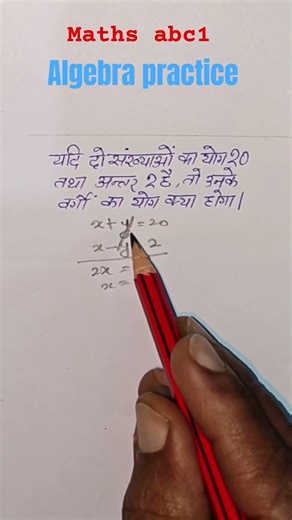 Maths abc1
Algebra practice
यदि दो संख्याओं का योग 20
तथा अन्तर 2 है, तो उनके
वर्गों का योग क्या होगा।
x + y = 20
x - y 2
2x =
x =